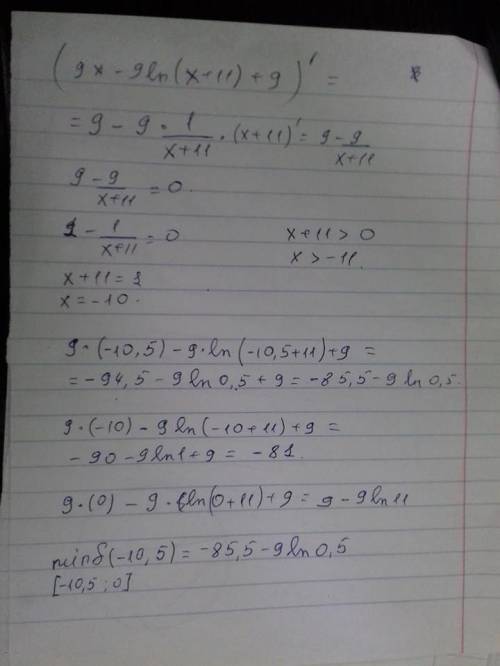 (9x - 9ln(x+11) + 9)' =
= 9 - 9 · 1/(x+11) · (x+11)' = 9 - 9/(x+11)
9 - 9/(x+11) = 0.
1 - 1/(x+11) = 0
x+11 > 0
x > -11.
x+11 = 1
x = -10.
9·(-10,5) - 9·ln(-10,5+11)+9 =
= -94,5 - 9 ln 0,5 + 9 = -85,5 - 9 ln 0,5.
9·(-10) - 9 ln(-10+11)+9 =
-90 - 9 ln 1 + 9 = -81.
9·(0) - 9·ln(0+11)+9 = 9 - 9 ln 11
min f(-10,5) = -85,5 - 9 ln 0,5
[-10,5 ; 0]